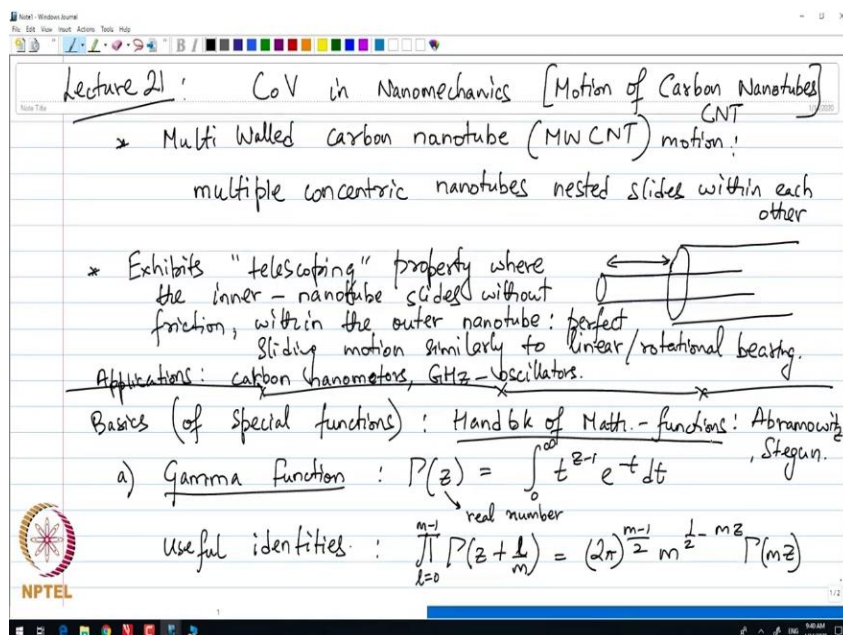 Note1 - Windows Journal
File Edit View Insert Actions Tools Help
Lecture 21 : CoV in Nanomechanics [Motion of Carbon Nanotubes]
CNT
Note Title
* Multi Walled carbon nanotube (MWCNT) motion:
multiple concentric nanotubes nested slides within each
other
* Exhibits "telescoping" property where
the inner-nanotube slides without
friction, within the outer nanotube: perfect
sliding motion similarly to linear/rotational bearing.
Applications: carbon nanomotors, GHz-oscillators.
Basics (of special functions) : Handbk of Math.-functions: Abramowitz
, Stegun.
a) Gamma function : Γ(z) = ∫₀^∞ t^{z-1} e^{-t} dt
real number
Useful identities : ∏_{l=0}^{m-1} Γ(z + l/m) = (2π)^{(m-1)/2} m^{1/2 - mz} Γ(mz)
NPTEL
1
1/2
ENG
9:40 AM